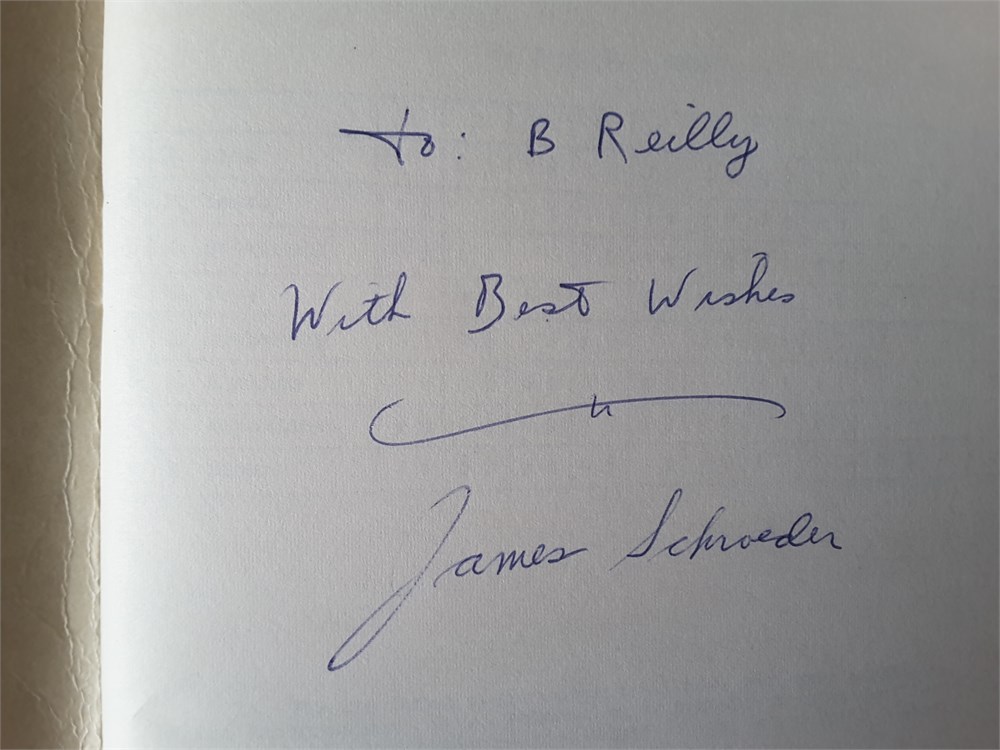 To: B Reilly
With Best Wishes
James Schroeder